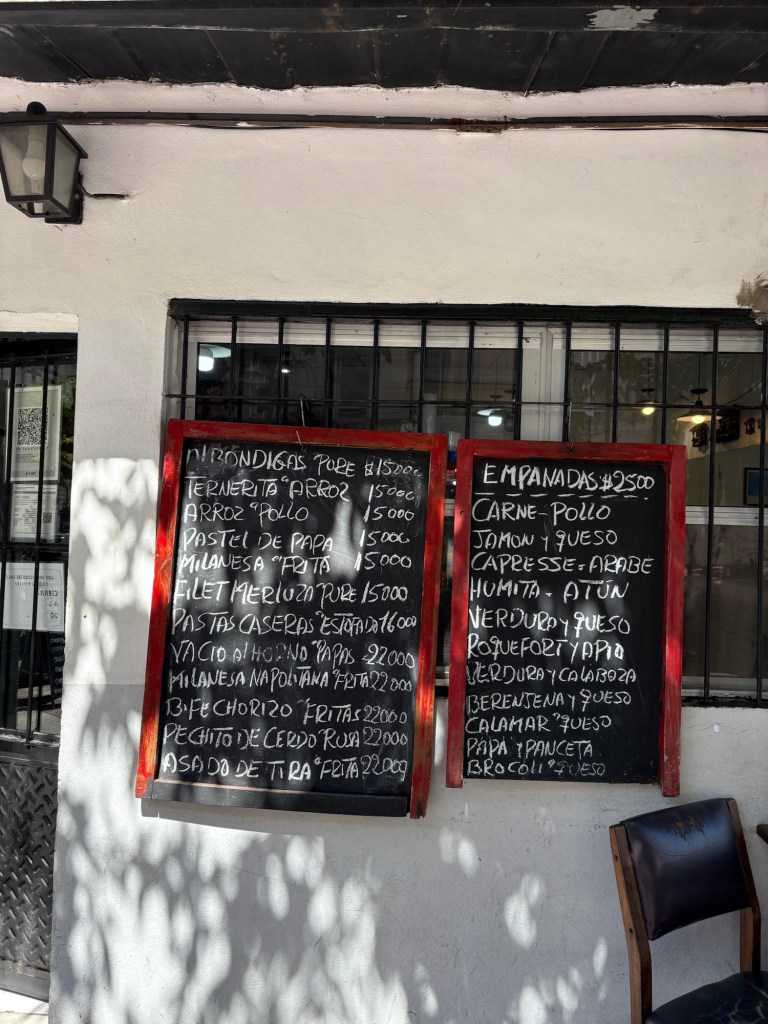 ALBONDIGAS PURE $15000
TERNERITA "ARROZ 15000
ARROZ "POLLO 15000
PASTEL DE PAPA 15000
MILANESA "FRITA 15000
FILET MERLUZA "PURE 15000
PASTAS CASERAS "ESTOFADO 16000
VACIO AL HORNO "PAPAS 22000
MILANESA NAPOLITANA "FRITA 22000
BIFE CHORIZO "FRITAS 22000
PECHITO DE CERDO "RUSA 22000
ASADO DE TIRA "FRITA 22000
EMPANADAS $2500
CARNE-POLLO
JAMON Y QUESO
CAPRESSE-ARABE
HUMITA-ATÚN
VERDURA Y QUESO
ROQUEFORT Y APIO
VERDURA Y CALABAZA
BERENJENA Y QUESO
CALAMAR "QUESO
PAPA Y PANCETA
BROCOLI "QUESO